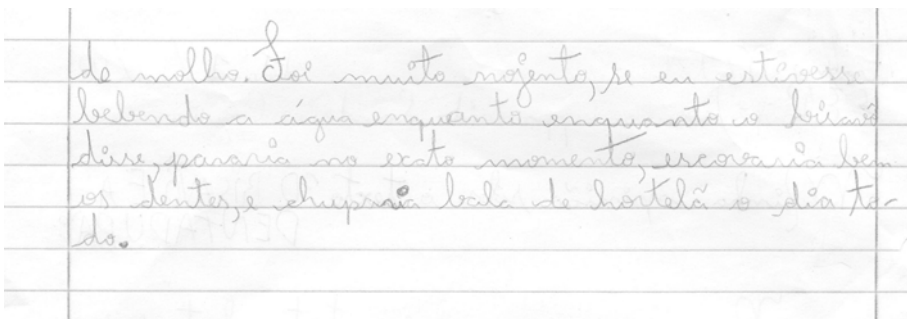 de molho. Foi muito nojento, se eu estivesse
bebendo a água enquanto enquanto o bisavô
disse, pararia no exato momento, escovaria bem
os dentes, e chuparia bala de hortelã o dia to-
do.